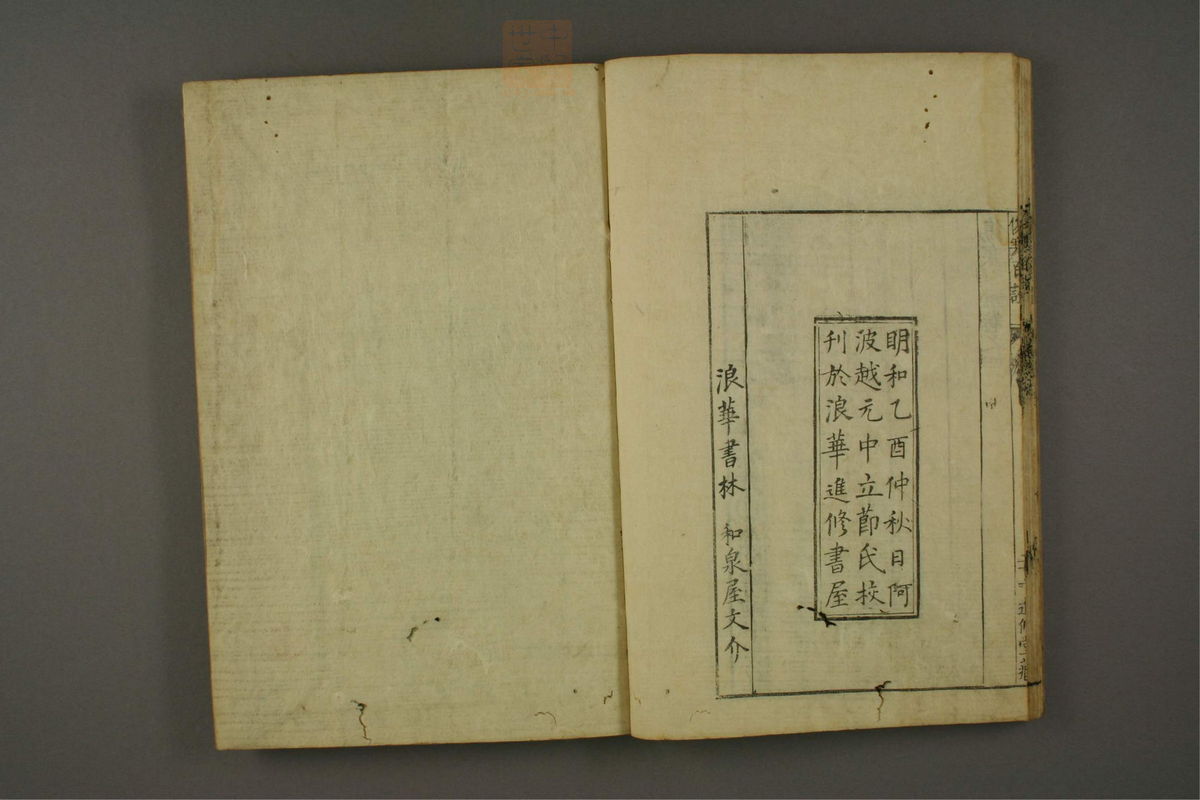 明和乙酉仲秋日阿
波越元中立節氏校
刊於浪華進修書屋
浪華書林　和泉屋文介